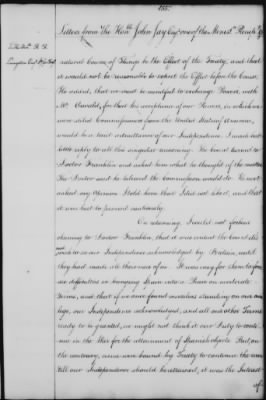 155
Letters from The Honble John Jay Esqr one of the Minist. Plenipo.
To the Honble R. R.
Livingston Esqr
natural Course of Things to be the Effect of the Treaty, and that
it would not be reasonable to expect the Effect before the Cause.
He added, that we must be mindful to exchange Powers, with
Mr. Oswald, for that his acceptance of our Powers, in which we
were stiled Commissioners from the United States of America,
would be a tacit admittance of our Independence. I made but
little reply to all this singular reasoning. The Count turned to
Doctor Franklin and asked him what he thought of the matter.
The Doctor said he believed the Commission would do. He next
asked my Opinion. I told him that I did not like it, and that
it was best to proceed cautiously.
On returning, I could not forbear
observing to Doctor Franklin, that it was evident the Court
to see our Independence acknowledged by Britain, until
they had made all their uses of us. It was easy for them to fore-
see difficulties in bringing Spain into a Peace on moderate
Terms, and that if we once found ourselves standing on our own
legs, our Independence acknowledged, and all our other Terms
ready to be granted, we might not think it our Duty to conti-
nue in the War for the attainment of Spanish objects. But, on
the contrary, as we were bound by Treaty to continue the war
till our Independence should be attained, it was the Interest
of